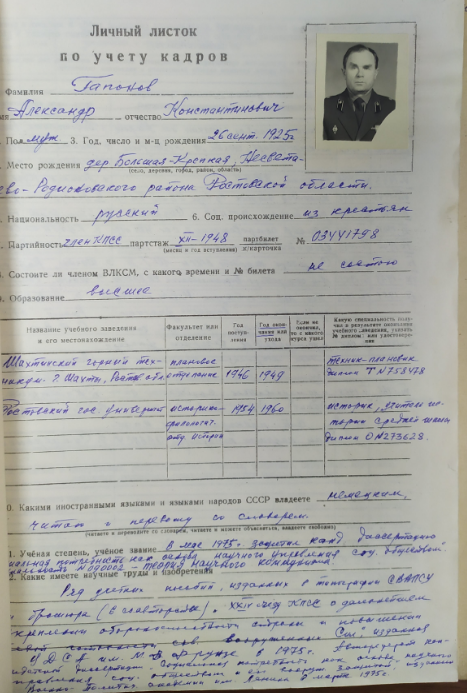 Личный листок
по учету кадров
Фамилия Гапонов
Александр отчество Константинович
Пол муж 3. Год, число и м-ц рождения 26 сент. 1925г
Место рождения дер Большая-Крепкая, Несвета-
(село, деревня, город, район, область)
ево-Родионовского района Ростовской области.
Национальность русский 6. Соц. происхождение из крестьян
Партийность член КПСС партстаж XII-1948 партбилет № 03441798
(месяц и год вступления) к/карточка
Состоите ли членом ВЛКСМ, с какого времени и № билета не состою
Образование высшее
Название учебного заведения и его местонахождение
Факультет или отделение
Год поступления
Год окончания или ухода
Если не окончил, то с какого курса ушел
Какую специальность получил в результате окончания учебного заведения, указать № диплома или удостоверения
Шахтинский горный тех- плановое техник-плановик
никум. г. Шахты, Ростов обл. отделение 1946 1949 диплом Т №758478
Ростовский гос. университет историко- 1954 1960 историк, учитель ис-
филологич. тории средней школы
отд. истории диплом О №273628.
0. Какими иностранными языками и языками народов СССР владеете немецким,
читаю и перевожу со словарем.
(читаете и переводите со словарем, читаете и можете объясняться, владеете свободно)
1. Учёная степень, учёное звание В мае 1975г. защитил канд. диссертацию
потребность как основа научного управления соц. обществом
теория научного коммунизма.
2. Какие имеете научные труды и изобретения
Ряд учебных пособий, изданных в типографии
Брошюра (С соавторство). XXIV съезд КПСС о дальнейшем
укреплении обороноспособности страны и повышении
вооруженных Сил, издана
ДСА им. М.В. Фрунзе в 1975г. Автореферат кан-
дидатской диссертации
в марте 1975г.